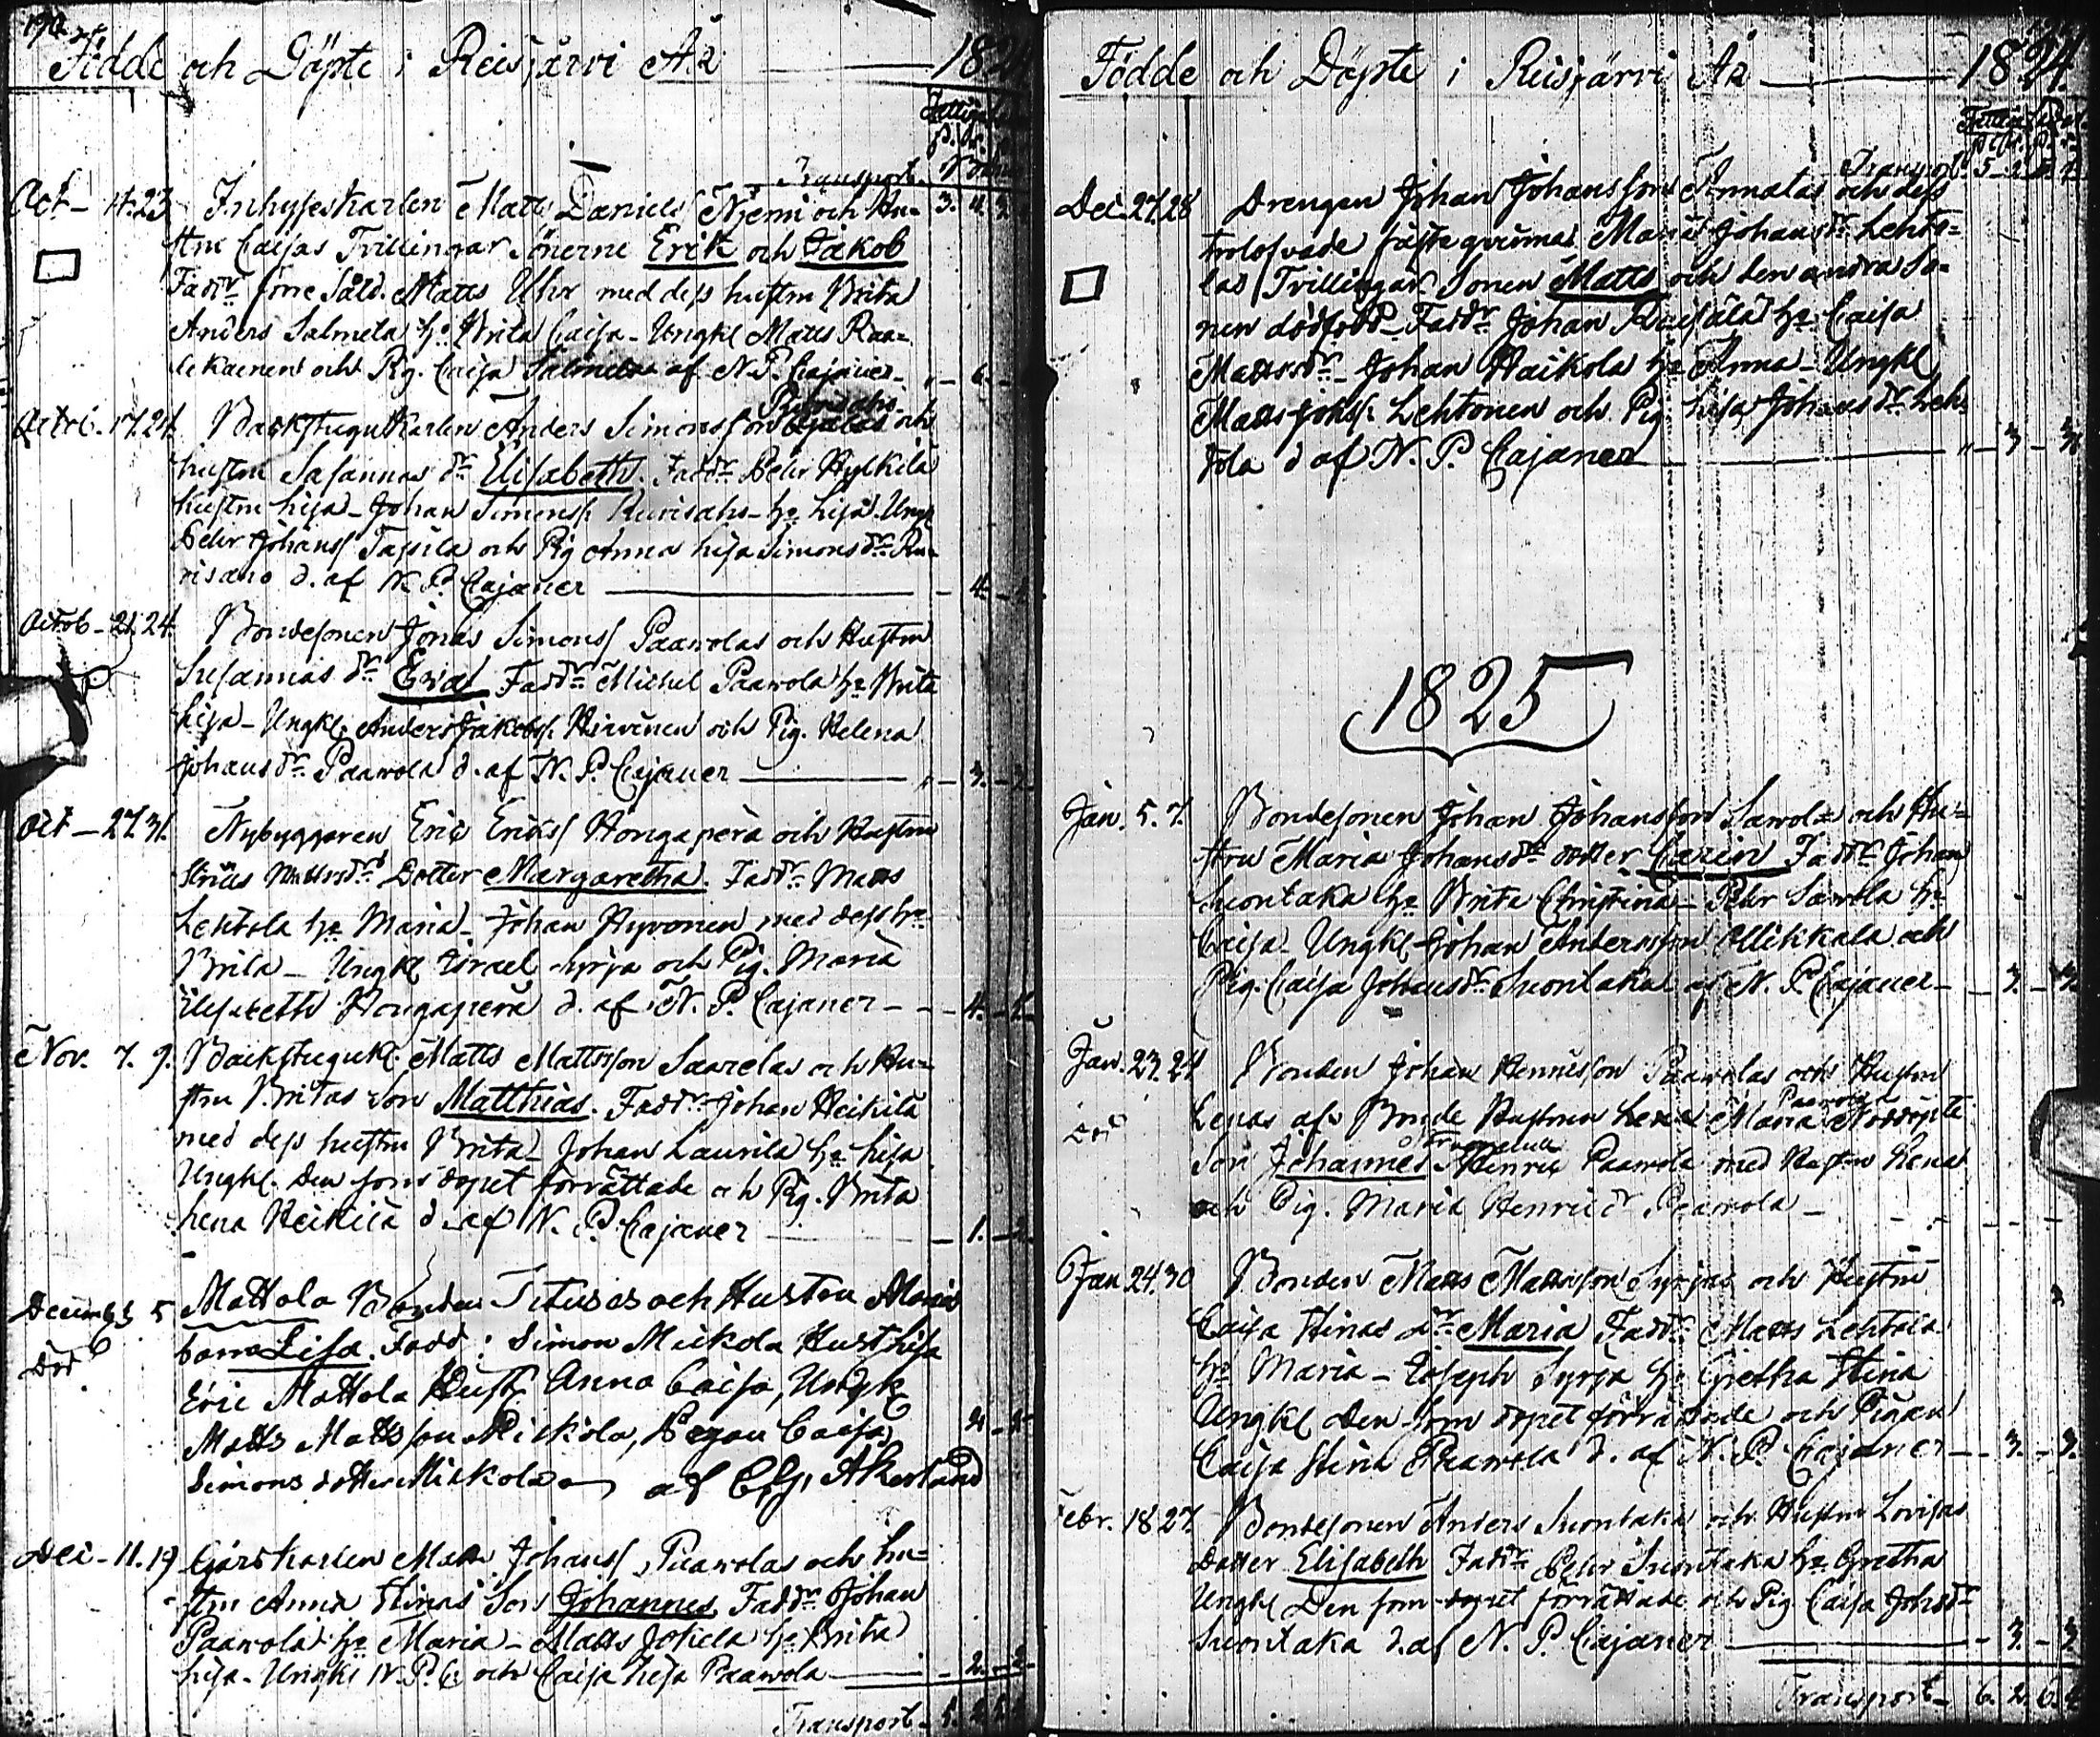 190
Födde och Döpte i Reisjärvi År 1824
Transport
Oct - 17.23 Inhyseskarlen Matts Daniels Niemi och Hu=
stru Caisas Tvillingar Sönerne Erik och Jakob
Faddr förre Sold. Matts Uhr med dess hustru Brita
Anders Salmela hr Brita Caisa - Ungkl Matts Raa=
tikainen och Pig. Caisa Salmela af N. P. Cajaner
Octob. 17.24 Backstugukarlen Anders Simonsson och
hustru Susannas dr Elisabeth. Faddr Pehr Hylkilä
hustru Lisa - Johan Simonss. Kurisaho - hr Lisa Ungk
Pehr Johanss Tassila och Pig Anna Lisa Simonsdr Ku=
risaho d. af N. P. Cajaner - 4 -
Octob - 21.24 Bondesonen Jonas Simonss Paawolas och Hustru
Susannas dr Eva Faddr Michel Paawola hr Brita
Lisa - Ungkl. Anders Jakobss. Hirvinen och Pig. Helena
Johansdr Paawola d. af N. P. Cajaner - 3. -
Oct - 27.31 Nybyggaren Eric Eriks Hongaperä och Hustru
Stinas Mattsdr Dotter Margaretha. Faddr Matts
Lehtola hr Maria - Johan Hyvonen med dess hr
Brita - Ungkl Israel Syrja och Pig. Maria
Elisabeth Hongaperä d. af N. P. Cajaner - - 4. -
Nov. 7. 9. Backstugukl. Matts Mattsson Saarelas och Hu=
stru Britas son Matthias. Faddr Johan Heikilä
med dess hustru Brita - Johan Laurila hr Lisa
Ungkl. Den som dopet förrättade och Pig. Brita
Lena Heikilä d. af N. P. Cajaner - 1. - 2
Decemb 3 5 Mattola Bonden Tituses och Hustru Maria
död barn Lisa. Fadd: Simon Mickola Hust Lisa
Eric Mattola Hust. Anna Caisa, Ungk
Matts Mattsson Mickola, Pegan Caisa
Simons dotter Mickola af C. G. Akerland
Dec - 11.19 Gårdskarlen Matts Johans Paawolas och hu=
stru Anna Stinas Son Johannes Faddr Johan
Paawola hr Maria - Matts Jokela hr Brita
Lisa - Ungkl N. P. C. och Caisa Lisa Paawola - 2. - 2
Transport - 5. 2.
Födde och Döpte i Reisjärvi År 1824.
Transport. 5 - 2
Dec. 27.28 Drengen Johan Johanssons Annalas och dess
trolofvade fästeqvinnas Maria Johansdr Lehto=
las Tvillingar Sonen Matts och den andra So=
nen dödfödd - Faddr Johan Räisälä hr Caisa
Mattsdr - Johan Haikola hr Anna - Ungkl
Matts Johss. Lehtonen och Pig Lisa Johansdr Leh=
tola d af N. P. Cajaner - 3 - 3
1825
Jan. 5. 7. Bondesonen Johan Johansson Sawola och Hu=
stru Maria Johansdr dotter Carin Faddr Johan
Suontaka hr Brita Christina - Pehr Sawola hr
Caisa - Ungkl Johan Andersson Ollikkala och
Pig. Caisa Johansdr Suontaka af N. P. Cajaner - 3. - 3.
Jan. 23. 24 Bonden Johan Henricsson Paawolas och Hustru
Paawola
död Lenas af Bonde Hustrun Lena Maria Nöddöpte
Son Johannes Henric Paawola med Hustru Lena
och Pig. Maria Henricdr Paawola -
Jan 24.30 Bonden Matts Mattsson Syrjas och Hustru
Caisa Stinas dr Maria Faddr Matts Lehtola
hr Maria - Joseph Syrja hr Gretha Stina
Ungkl den som dopet förrättade och Pigan
Caisa Stina Paawola d. af N. P. Cajaner - 3. - 3.
Febr. 18 27. Bondesonen Anders Suontaka och Hustru Lovisas
Dotter Elisabeth Faddr Pehr Suontaka hr Gretha
Ungkl Den som dopet förrättade och Pig Caisa Johsdr
Suontaka d. af N. P. Cajaner - 3. - 3.
Transport - 6. 2. 6.